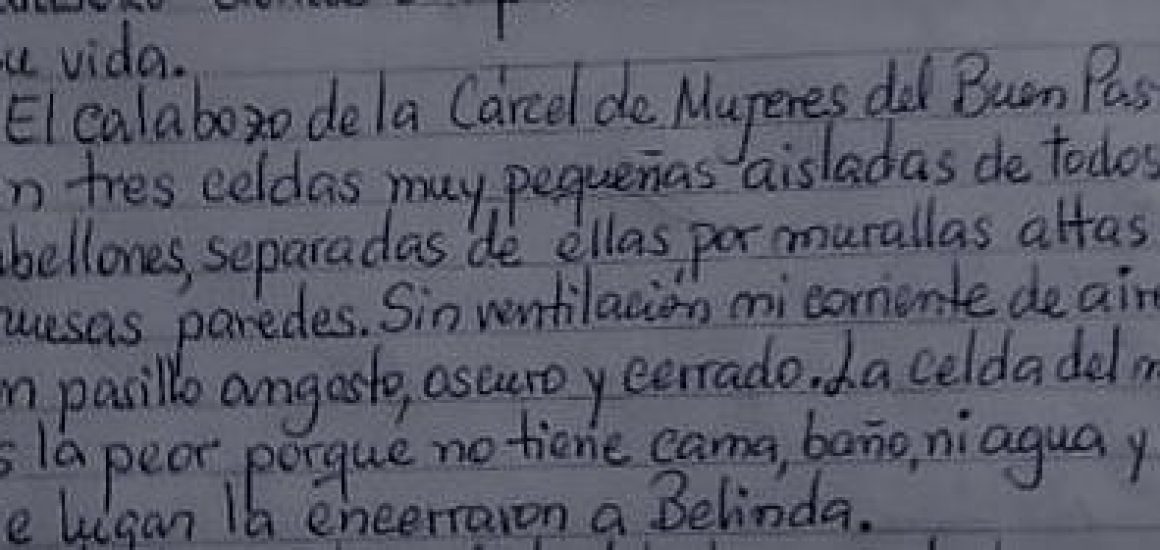 u vida.
El calabozo de la Cárcel de Mujeres del Buen Pas
n tres celdas muy pequeñas aisladas de todos
bellones, separadas de ellas, por murallas altas
uesas paredes. Sin ventilación mi corriente de air
n pasillo angosto, oscuro y cerrado. La celda del m
s la peor porque no tiene cama, baño, ni agua y
e lugar la encerraron a Belinda.